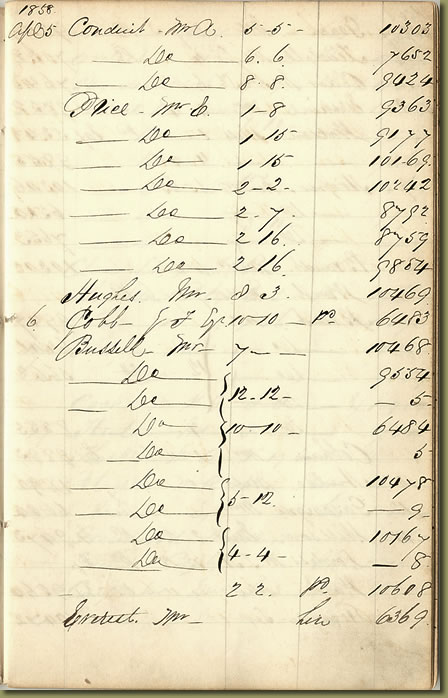 1858
Apl 5 Conduit - Mr A. 5-5- 10303
Do 6.6. 7652
Do 8.8. 9424
Price - Mr E. 1-8 9363
Do 1 15 9177
Do 1 15 10169
Do 2-2- 10242
Do 2-7. 8792
Do 2 16. 8759
Do 2 16. 9854
Hughes. Mr. 8 3. 10469
6. Cobb 10-10 - pd. 6483
Bussell Mr 7 - - 10468
Do 9554
Do 12-12- - 5-
Do 10-10- 6484
Do 5
Do 10478
Do 5-12. - 9-
Do 10167
Do 4-4- - 8
2 2. pd. 10608
Everett. Mr - 6369